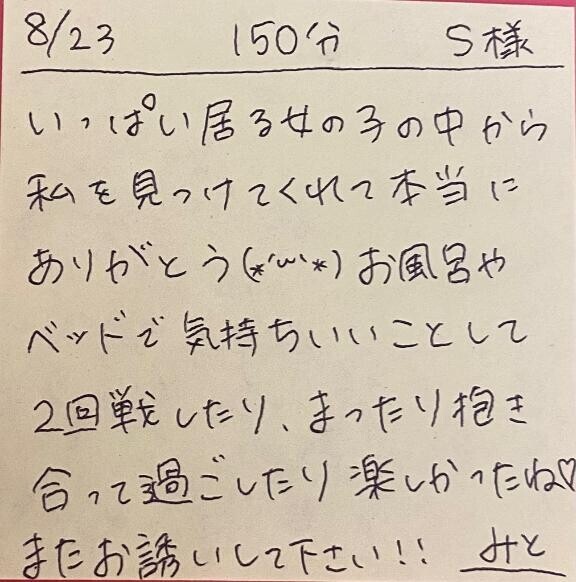 8/23 150分 S様
いっぱい居る女の子の中から
私を見つけてくれて本当に
ありがとう(*´ω`*)お風呂や
ベッドで気持ちいいことして
2回戦したり、まったり抱き
合って過ごしたり楽しかったね♡
またお誘いして下さい!! みと